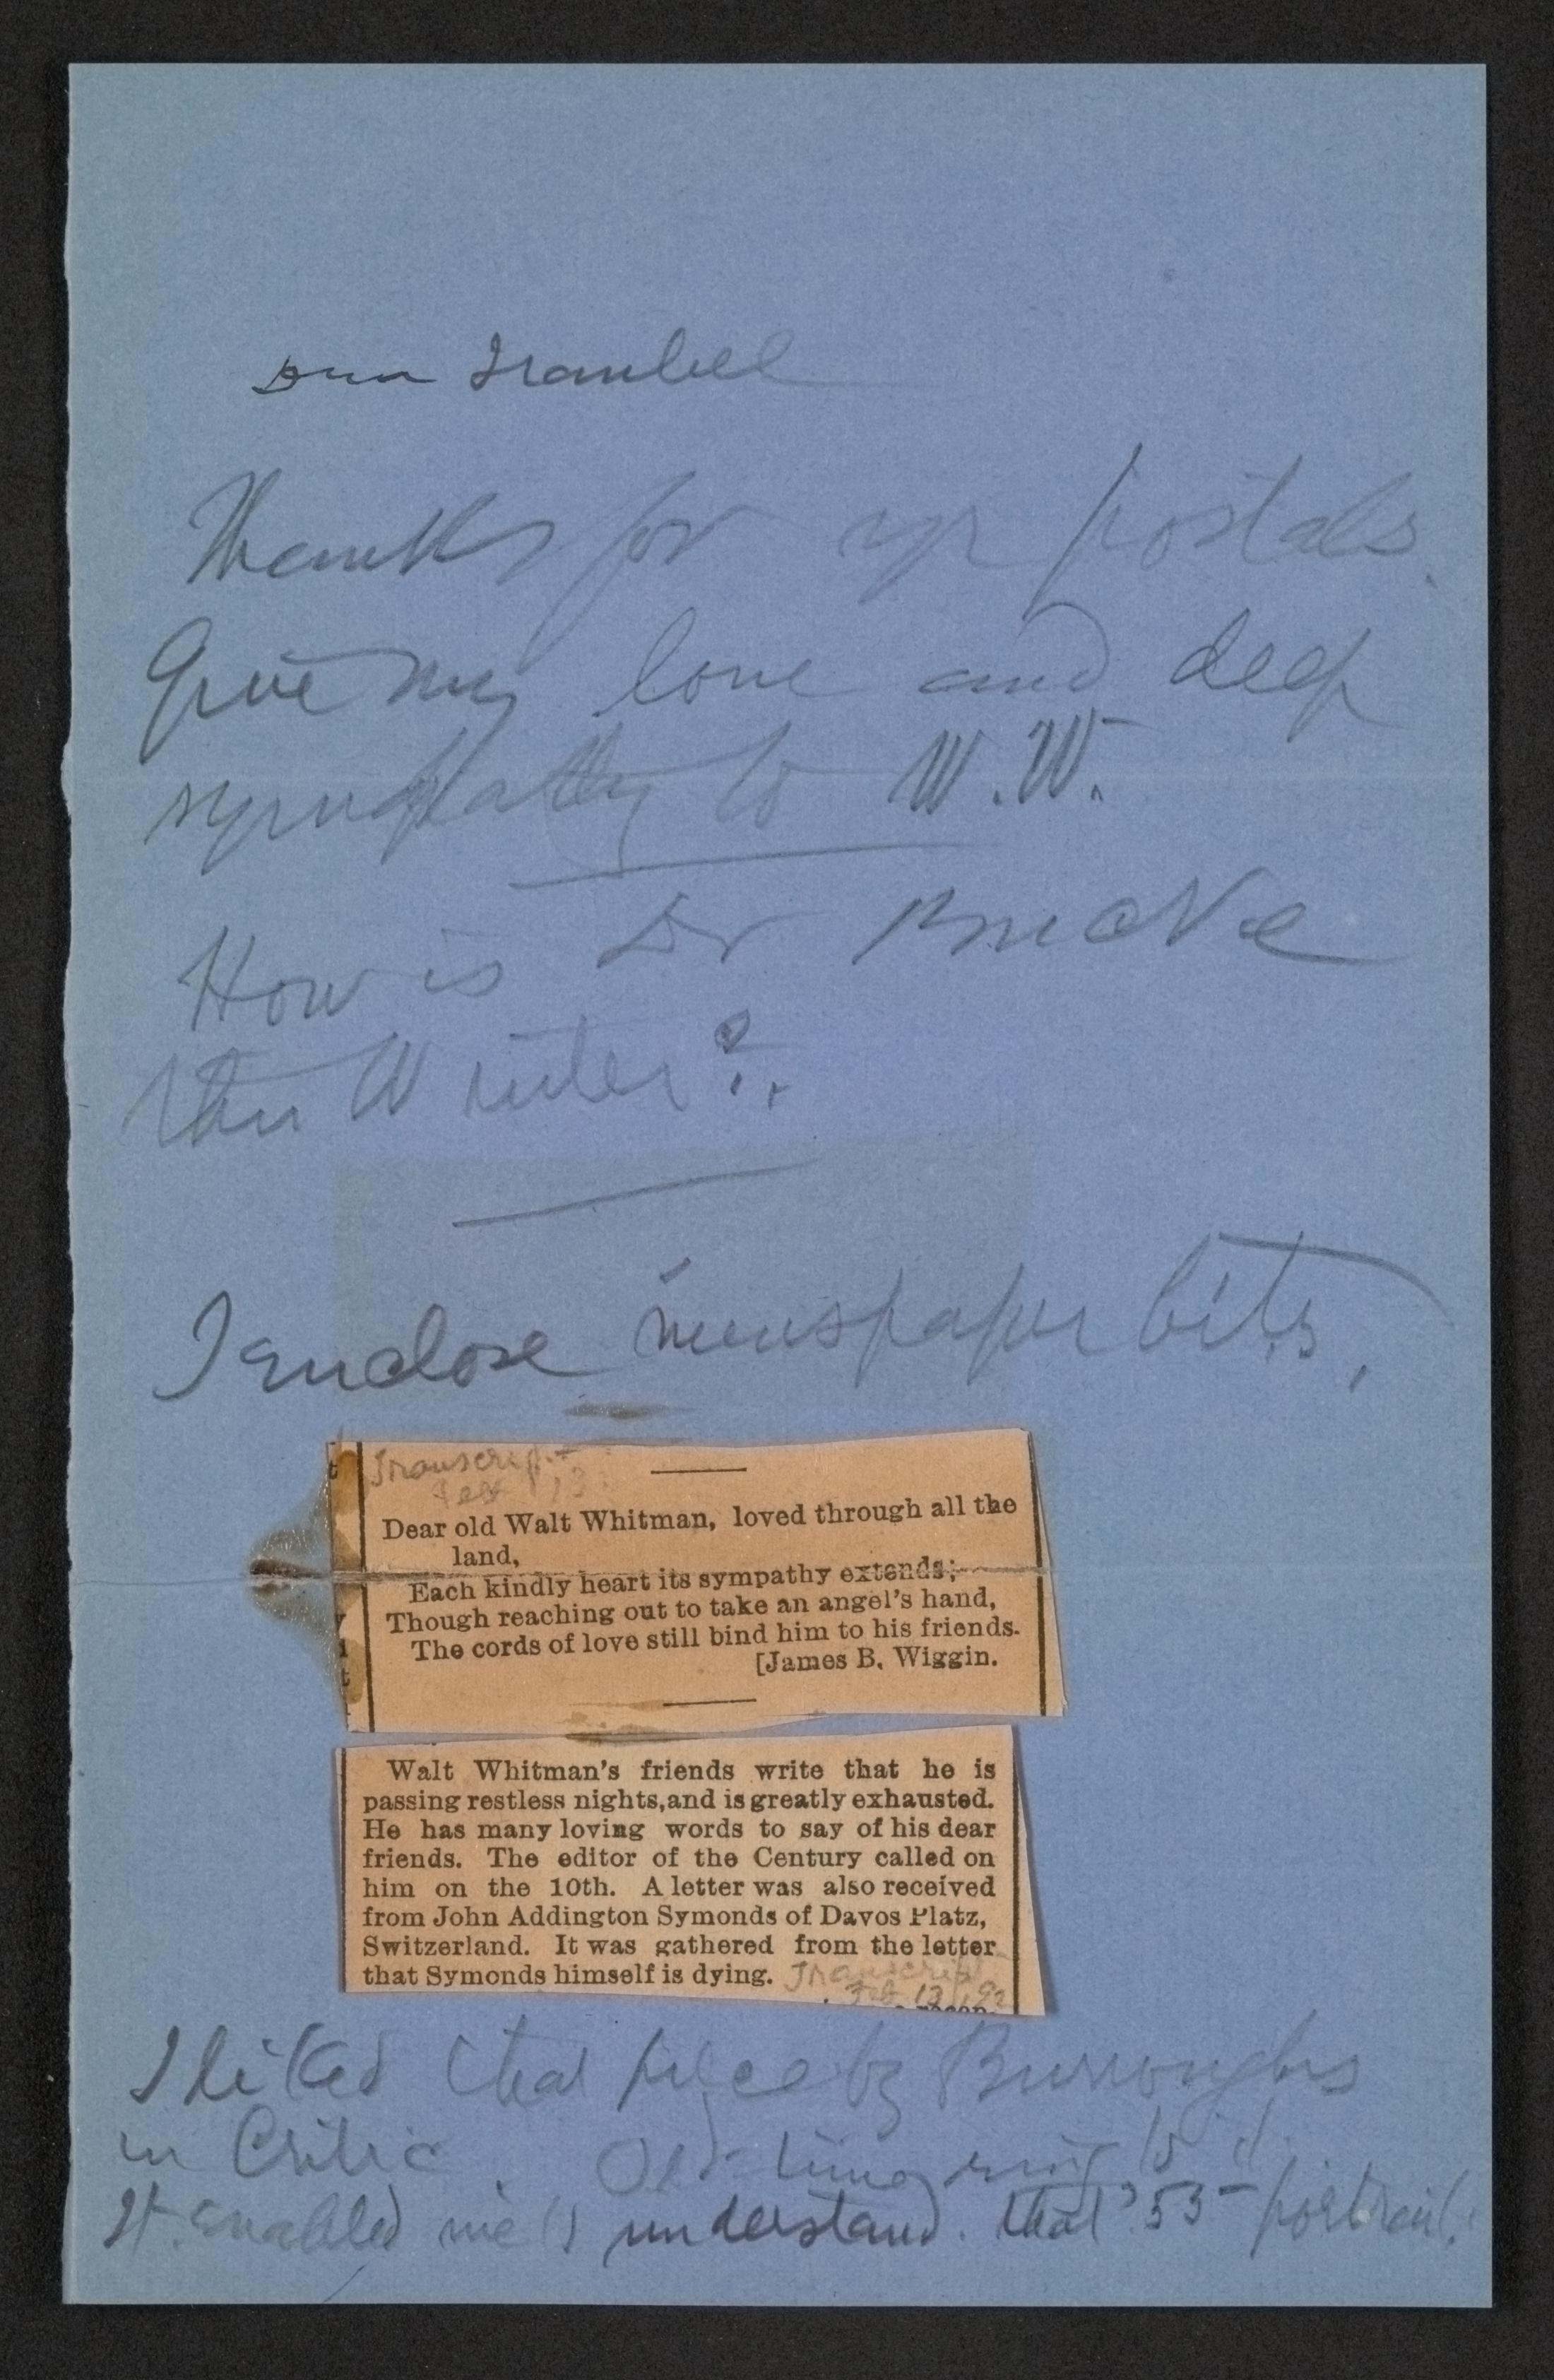 Dear Traubel
Thanks for yr postals.
Give my love and deep
sympathy to W.W.
How is Dr Bucke
this Winter?
I enclose newspaper bits.
Transcript
Feb 13
Dear old Walt Whitman, loved through all the
land,
Each kindly heart its sympathy extends;
Though reaching out to take an angel's hand,
The cords of love still bind him to his friends.
[James B. Wiggin.
Walt Whitman's friends write that he is
passing restless nights, and is greatly exhausted.
He has many loving words to say of his dear
friends. The editor of the Century called on
him on the 10th. A letter was also received
from John Addington Symonds of Davos Platz,
Switzerland. It was gathered from the letter
that Symonds himself is dying. Transcript
Feb 13 / 92
I liked that piece by Burroughs
in Critic. Old-time ring to it.
It enabled me to understand that '55 portrait.